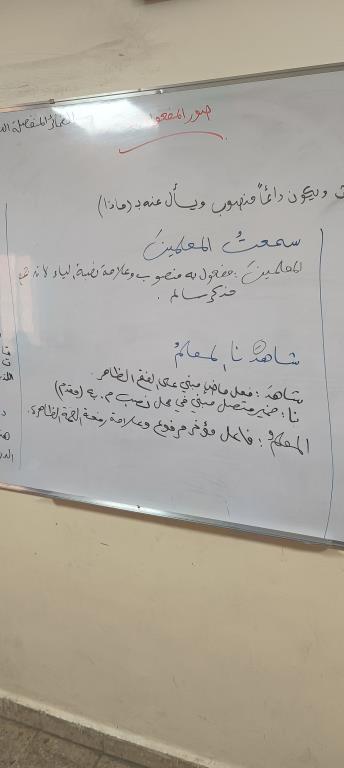 الضمائر المنفصلة
صور المفعول
ويكون دائماً منصوب ويسأل عنه بـ (ماذا)
سمعتُ المعلمينَ
المعلمينَ: مفعول به منصوب وعلامة نصبه الياء لأنه جمع
مذكر سالم.
شاهدَنا المعلمُ
شاهدَ: فعل ماضٍ مبني على الفتح الظاهر.
نا: ضمير متصل مبني في محل نصب م. به (مقدم)
المعلمُ: فاعل مؤخر مرفوع وعلامة رفعه الضمة الظاهرة.